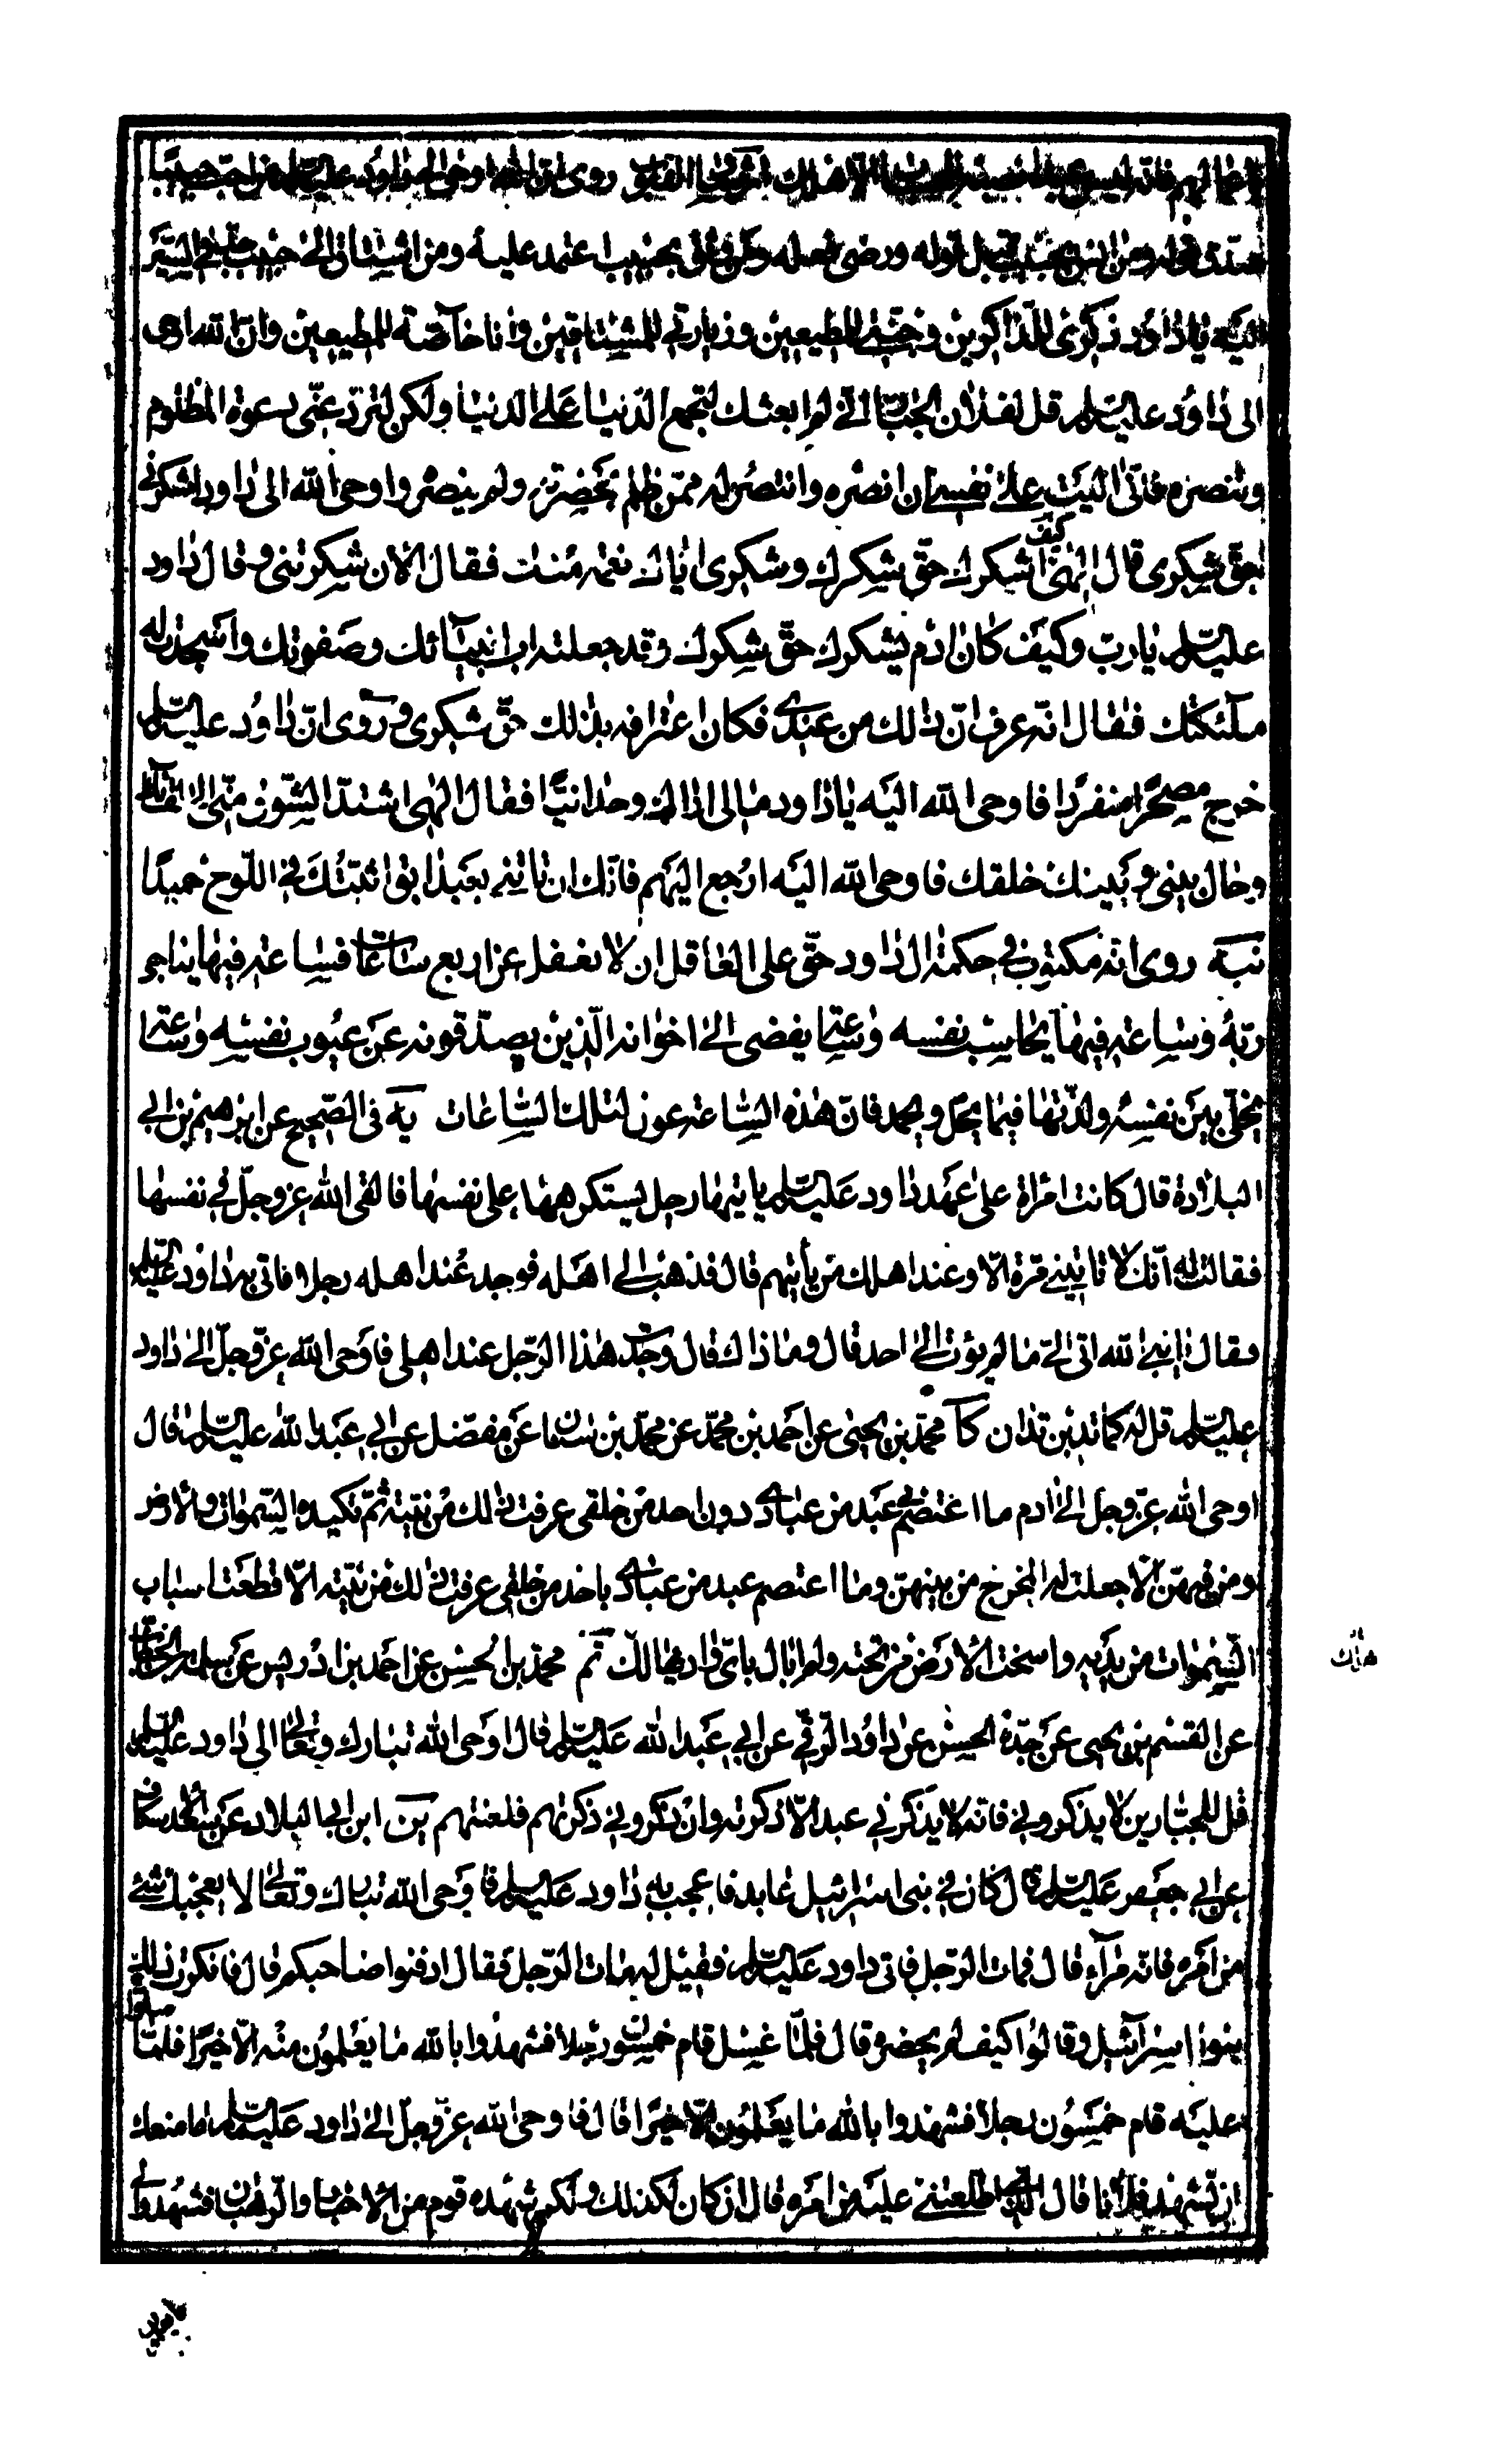 روى ان الله اوحى الى داود عليه السلام من احب حبيبا
صدق قوله ومن انس بحبيب قبل قوله ورضى فعله ومن وثق بحبيب اعتمد عليه ومن اشتاق الى حبيب جد في السير
اليه يا داود ذكرى للذاكرين وجنتى للمطيعين وزيارتي للمشتاقين وانا خاصة للمطيعين وان الله اوحى
الى داود عليه السلم قل لفلان الجبار اني لم ابعثك لتجمع الدنيا على الدنيا ولكن لترد عنى دعوة المظلوم
وتنصره فاني اليت على نفسي ان انصره وانتصر له ممن ظلم بحضرته ولم ينصره واوحى الله الى داود اشكرني
حق شكرى قال الهى كيف اشكرك حق شكرك وشكرى اياك نعمة منك فقال الان شكرتنى و قال داود
عليه السلم يا رب وكيف كان ادم يشكرك حق شكرك وقد جعلته اب انبيائك وصفوتك واسجدت له
ملئكتك فقال انه عرف ان ذلك من عندى فكان اعترافه بذلك حق شكرى و روى ان داود عليه السلم
خرج مصحرا منفردا فاوحى الله اليه يا داود مالى اراك وحدانيا فقال الهى اشتد الشوق منى الى لقائك
وحال بينى وبينك خلقك فاوحى الله اليه ارجع اليهم فانك ان تاتني بعبد ابق اثبتك في اللوح حميدا
نبه روى انه مكتوب في حكمة ال داود حق على العاقل ان لا يغفل عن اربع ساعات فساعة فيها يناجي
ربه وساعة فيها يحاسب نفسه وساعة يفضى الى اخوانه الذين يصدقونه عن عيوب نفسه وساعة
يخلي بين نفسه ولذتها فيما يحل ويحمد فان هذه الساعة عون لتلك الساعات يه فى الصحيح عن ابرهيم بن ابي
البلاد قال كانت امراة على عهد داود عليه السلم ياتيها رجل يستكرهها على نفسها فالقى الله عز وجل في نفسها
فقالت له انك لا تاتيني مرة الا وعند اهلك من ياتيهم قال فذهب الى اهله فوجد عند اهله رجلا فاتى به داود عليه السلم
فقال يا نبي الله اتى الي ما لم يؤت الى احد قال وما ذاك قال وجدت هذا الرجل عند اهلي فاوحى الله عز وجل الى داود
عليه السلم قل له كما تدين تدان كا محمد بن يحيى عن احمد بن محمد عن محمد بن سنان عن مفضل عن ابي عبد الله عليه السلم قال
اوحى الله عز وجل الى ادم ما اعتصم بي عبد من عبادى دون احد من خلقى عرفت ذلك من نيته ثم تكيده السموات والارض
ومن فيهن الا جعلت له المخرج من بينهن وما اعتصم عبد من عبادى باحد من خلقى عرفت ذلك من نيته الا قطعت اسباب
السموات من يديه واسخت الارض من تحته ولم ابال باي واد هالك ثم محمد بن الحسن عن احمد بن ادريس عن سلمة بن الخطاب
عن القسم بن يحيى عن جده الحسن عن داود الرقي عن ابي عبد الله عليه السلم قال اوحى الله تبارك وتعالى الى داود عليه السلم
قل للجبارين لا يذكروني فانه لا يذكرني عبد الا ذكرته وان ذكروني ذكرتهم فلعنتهم ين ابن ابي البلاد عن سعد الاسكاف
عن ابي جعفر عليه السلم قال كان في بنى اسرائيل عابد فاعجب به داود عليه السلم فاوحى الله تبارك وتعالى لا يعجبك شئ
من امره فانه مرآء قال فمات الرجل فاتى داود عليه السلم فقيل له مات الرجل فقال ادفنوا صاحبكم قال فانكرت ذلك
بنوا اسرآئيل وقالوا كيف لم يحضره قال فلما غسل قام خمسون رجلا فشهدوا بالله ما يعلمون منه الا خيرا فلما صلوا
عليه قام خمسون رجلا فشهدوا بالله ما يعلمون الا خيرا قال فاوحى الله عز وجل الى داود عليه السلم ما منعك
ان تشهد فلانا قال للذى اطلعتنى عليه من امره قال ان كان لكذلك ولكن شهده قوم من الاحبار والرهبان فشهدوا لي
هلك